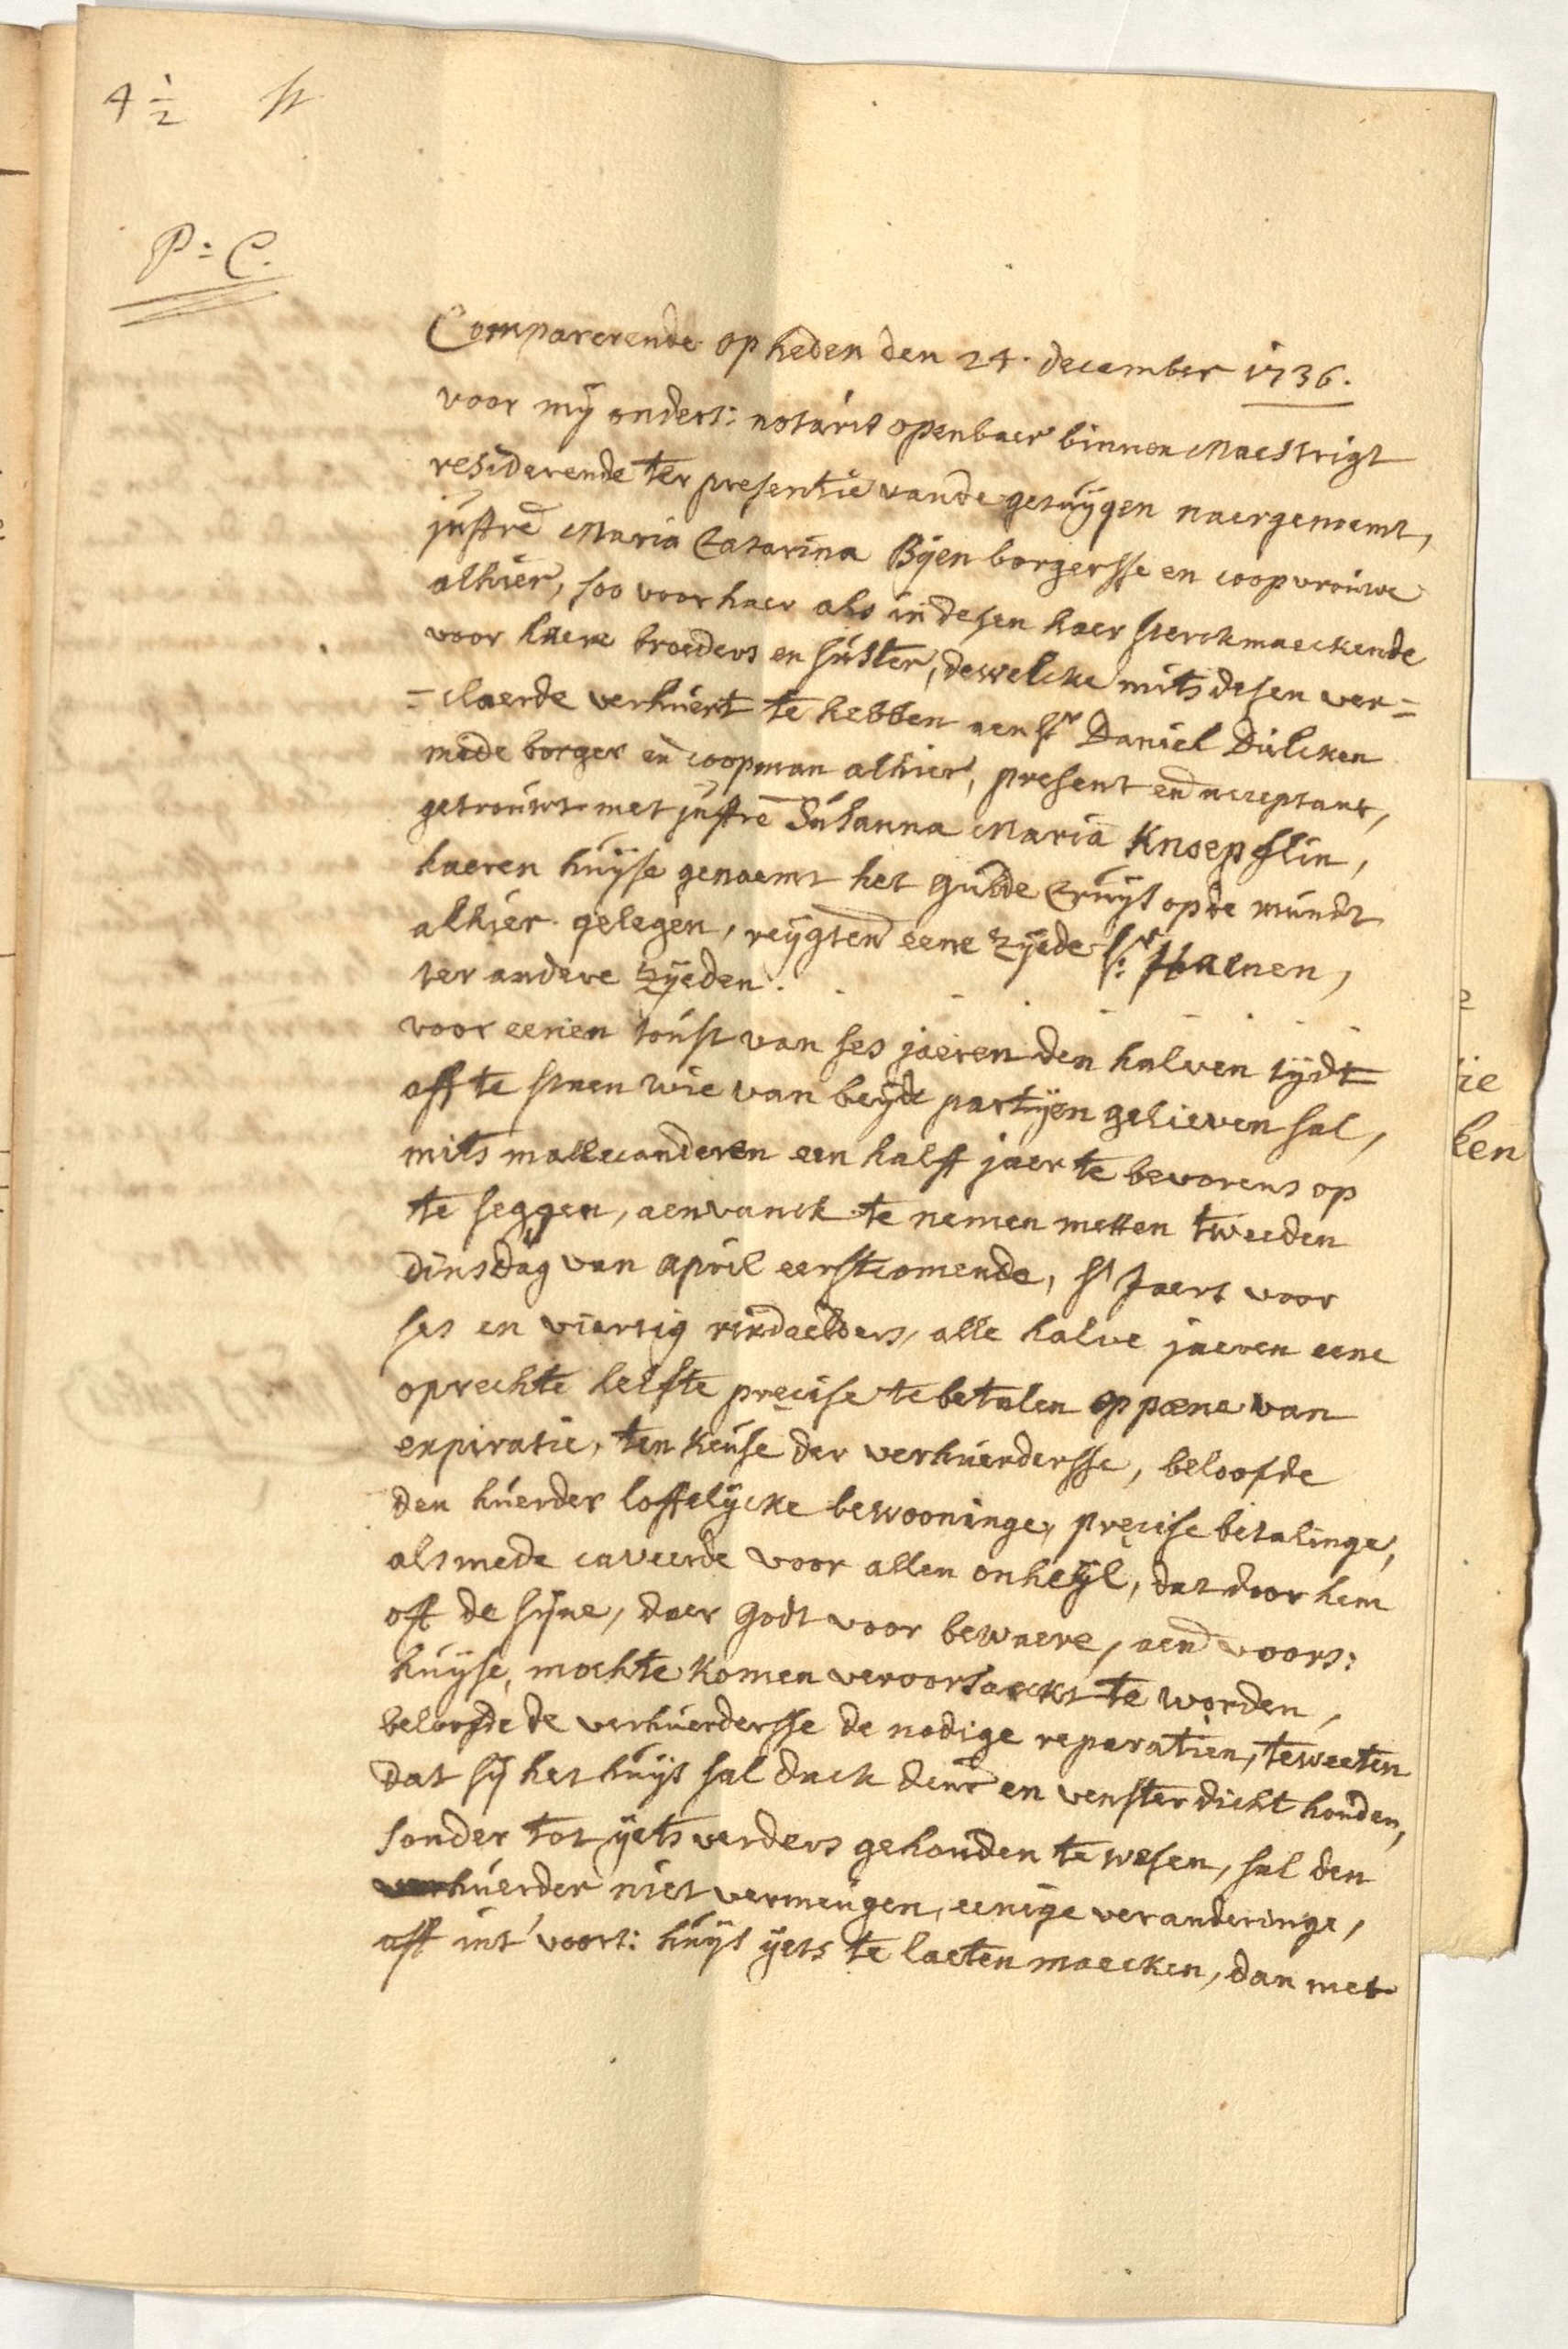 4 1/2 st
P: C.
Comparerende op heden den 24. december 1736.
voor mij onders: notaris openbaer binnen Maestrigt
residerende ter presentie vande getuijgen naergenoemt,
juffre Maria Catarina Bijen borgersse en coopvrouwe
alhier, soo voor haer als in desen haer sterckmaeckende
voor haere broeders en suster, dewelcke mits desen ver=
=claerde verhuert te hebben aen Sr Daniel Dulcken
mede borger en coopman alhier, present en acceptant,
getrouwt met juffre Susanna Maria Knoepflin,
haeren huijse genoemt het gulde Cruijs op de mundt
alhier gelegen, reijgten eene zijede Sr: Haenen,
ter andere zijeden . . - . - . .
voor eenen toust van ses jaeren den halven tijdt
aff te staen wie van beijde partijen gelieven sal,
mits malkanderen een halff jaer te bevorens op
te seggen, aenvanck te nemen metten tweeden
dinsdag van april eerstcomende, st Jaers voor
ses en viertig rixdaelders, alle halve jaeren eene
oprechte helfte precise te betalen op pœne van
expiratie, ten keuse der verhuerdersse, beloofde
den huerder loffelijcke bewooninge, precise betalinge,
als mede caveerde voor allen onheijl, dat door hem
oft de sijne, daer Godt voor bewaere, aen voors:
huijse, mochte komen veroorsaeckt te worden,
beloofde de verhuerdersse de nodige reparatien, te weeten
dat sij het huijs sal dack deur en venster dicht houden,
sonder tot ijets verders gehouden te wesen, sal den
huerder niet vermeugen, eenige veranderinge,
aff int' voors: huijs ijets te laeten maecken, dan met